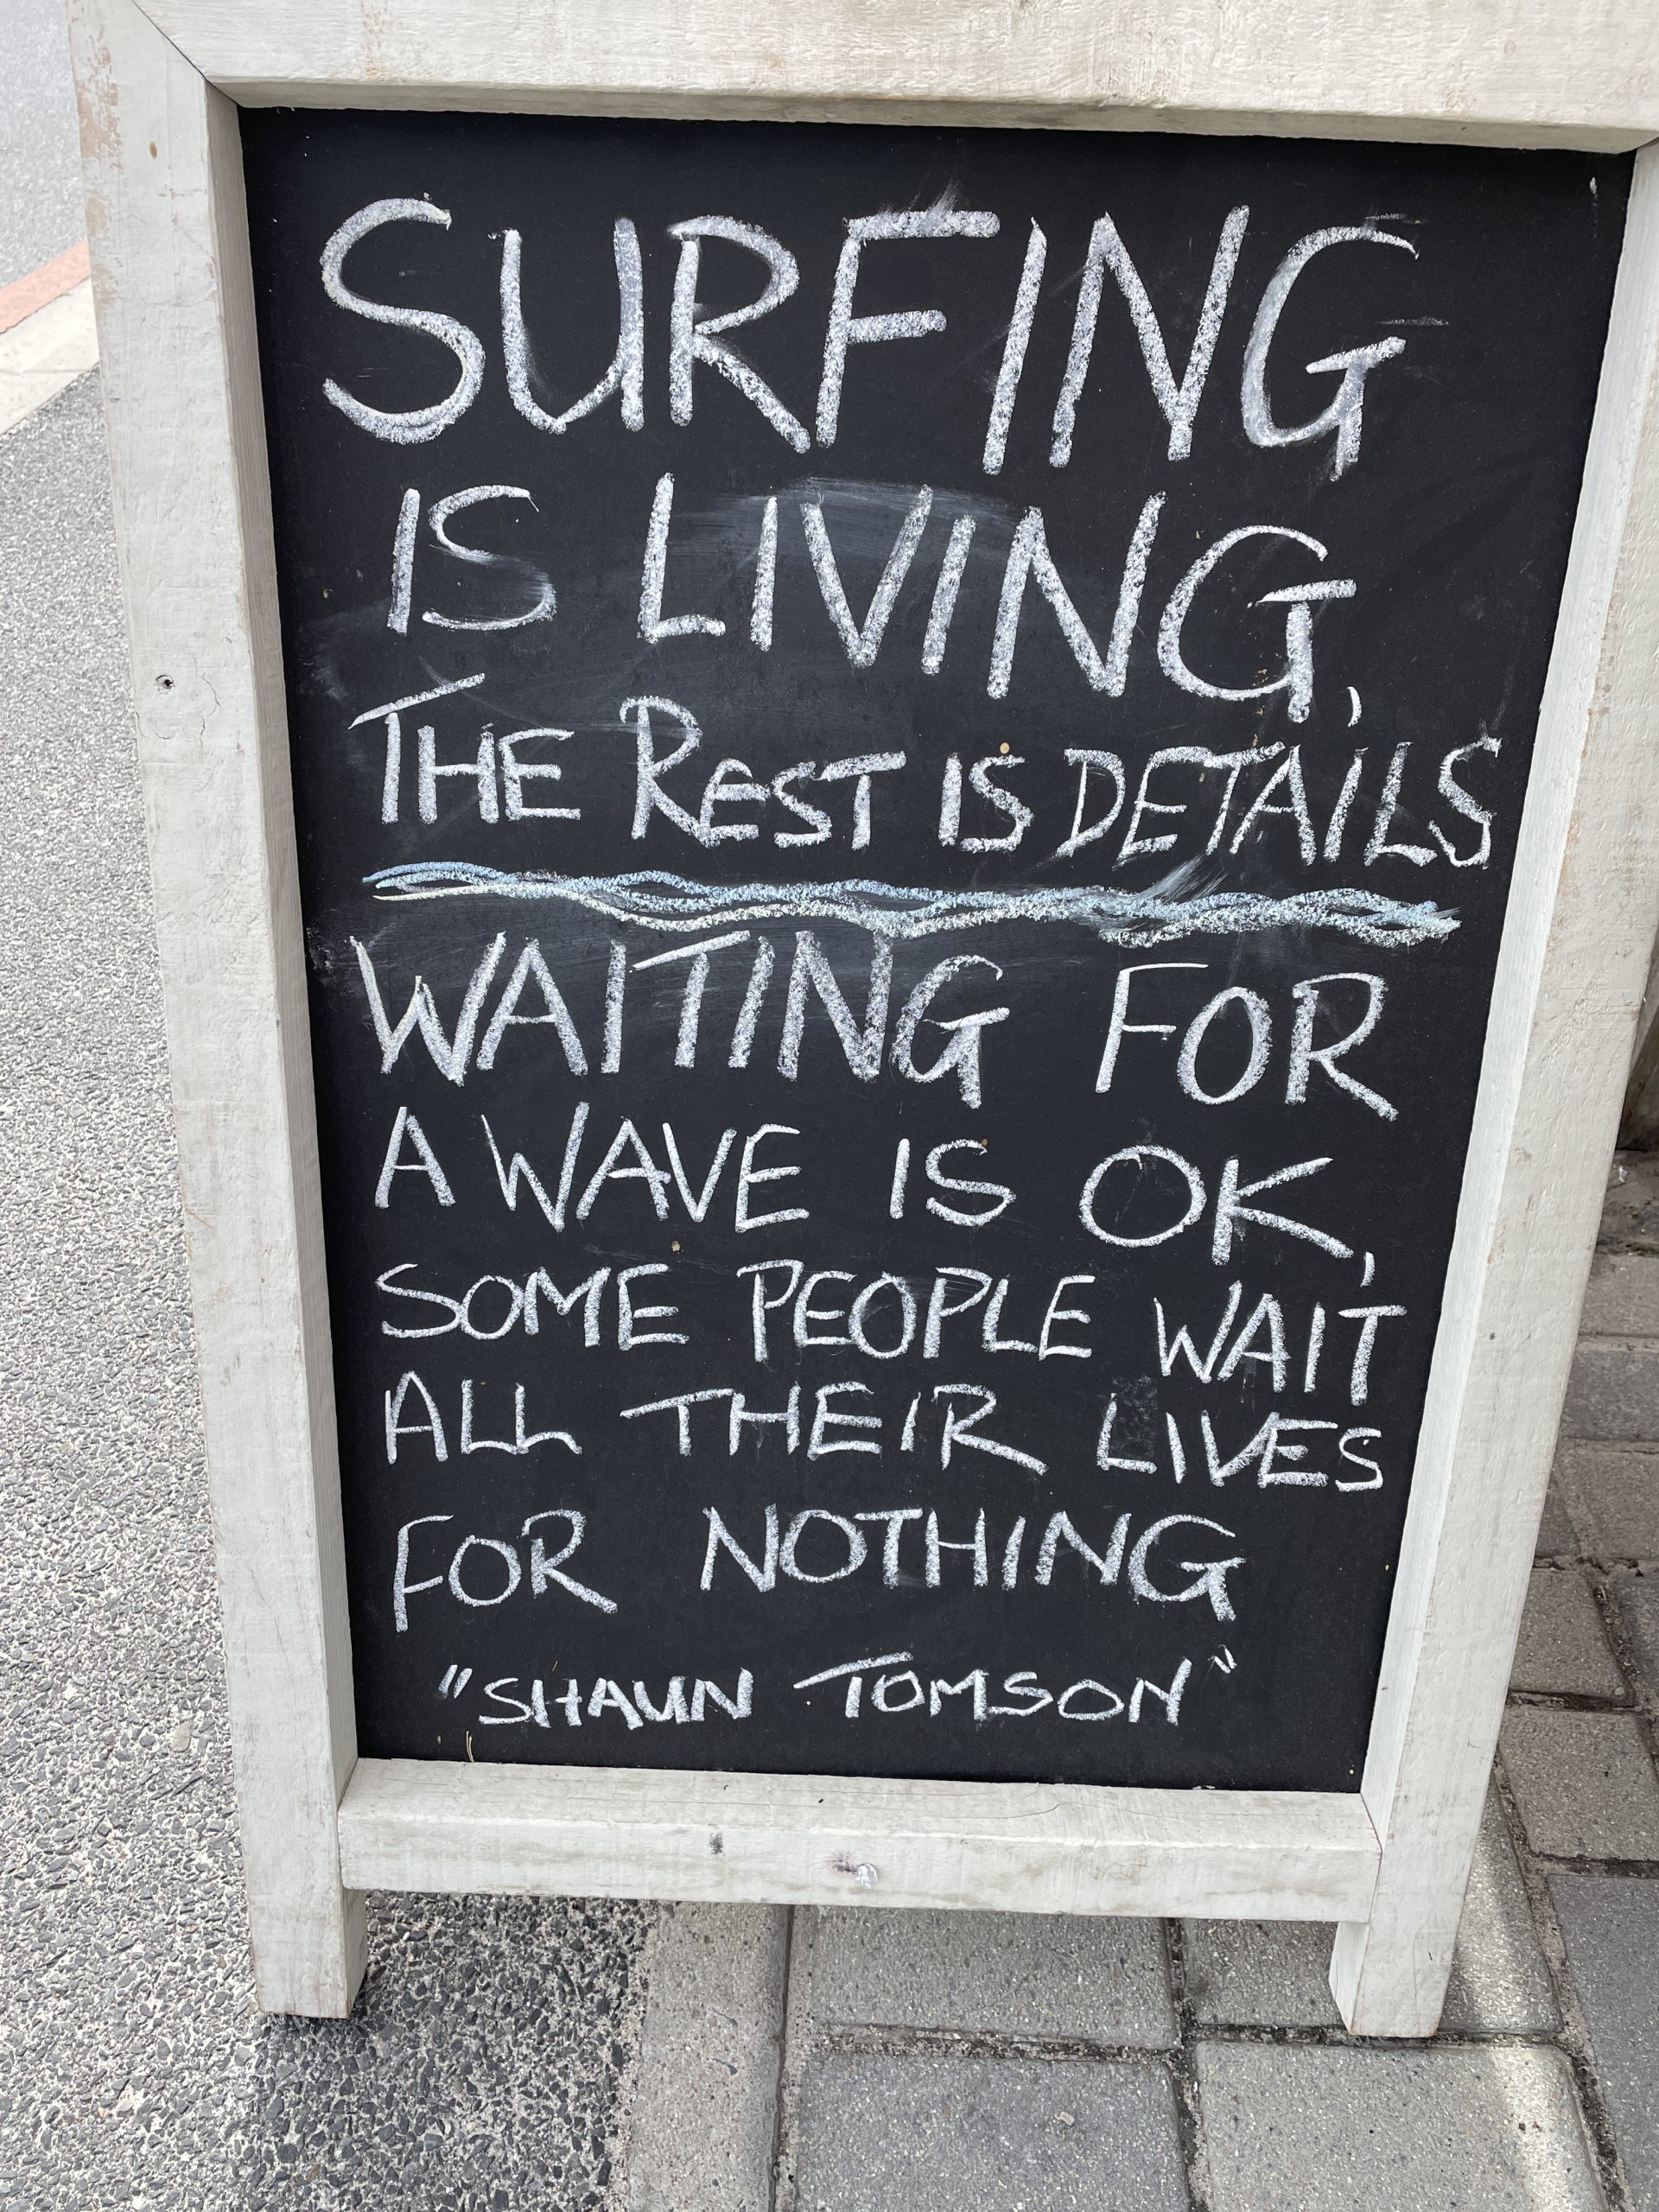 SURFING
IS LIVING,
THE REST IS DETAILS
WAITING FOR
A WAVE IS OK,
SOME PEOPLE WAIT
ALL THEIR LIVES
FOR NOTHING
"SHAUN TOMSON"